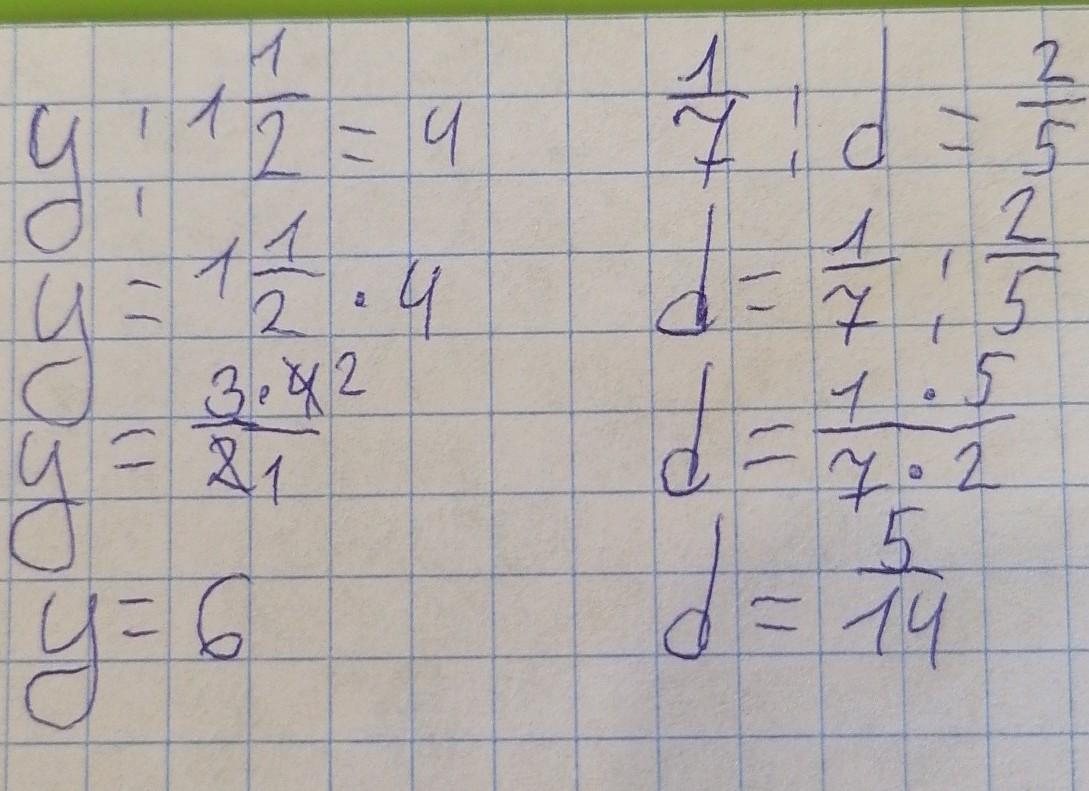 y : 1 1/2 = 4
y = 1 1/2 · 4
y = 3·4 2 / 2 1
y = 6
1/7 : d = 2/5
d = 1/7 : 2/5
d = 1 · 5 / 7 · 2
d = 5/14